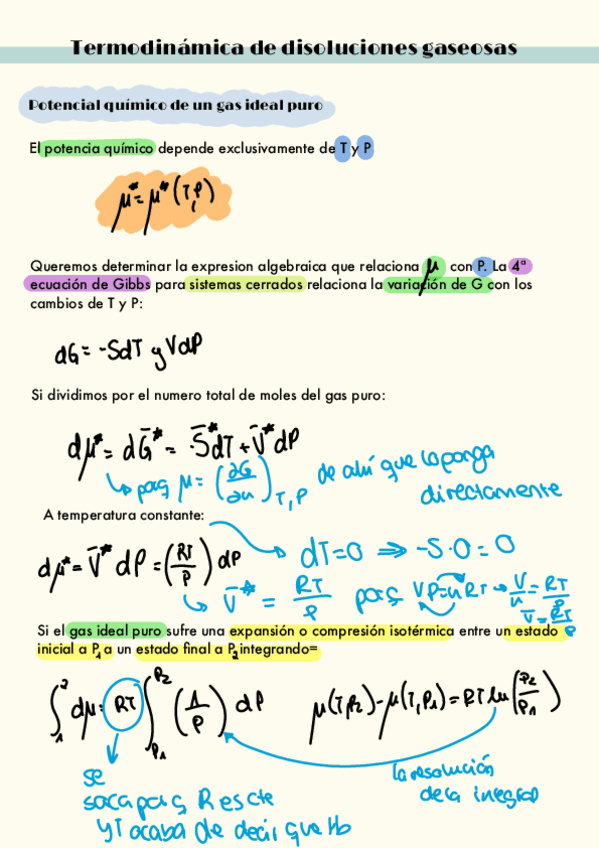 Termodinámica de disoluciones gaseosas
Potencial químico de un gas ideal puro
El potencia químico depende exclusivamente de T y P
μ* = μ* (T, P)
Queremos determinar la expresion algebraica que relaciona μ con P. La 4ª
ecuación de Gibbs para sistemas cerrados relaciona la variación de G con los
cambios de T y P:
dG = -SdT y VdP
Si dividimos por el numero total de moles del gas puro:
dμ* = dG̅* = -S̅*dT + V̅*dP
↳ porq μ = (∂G/∂n)T,P de ahí que lo ponga
directamente
A temperatura constante:
dT=0 ⇒ -S·0 = 0
dμ* = V̅* dP = (RT/P) dP
↳ V̅* = RT/P porq VP=nRT → V/n = RT/P
V̅ = RT/P
Si el gas ideal puro sufre una expansión o compresión isotérmica entre un estado
inicial a P1 a un estado final a P2 integrando=
∫₁² dμ = RT ∫P1P2 (1/P) dP μ(T,P2)-μ(T,P1) = RT ln (P2/P1)
se
saca porq R es cte
y T acaba de decir que tb
la resolución
de la integral